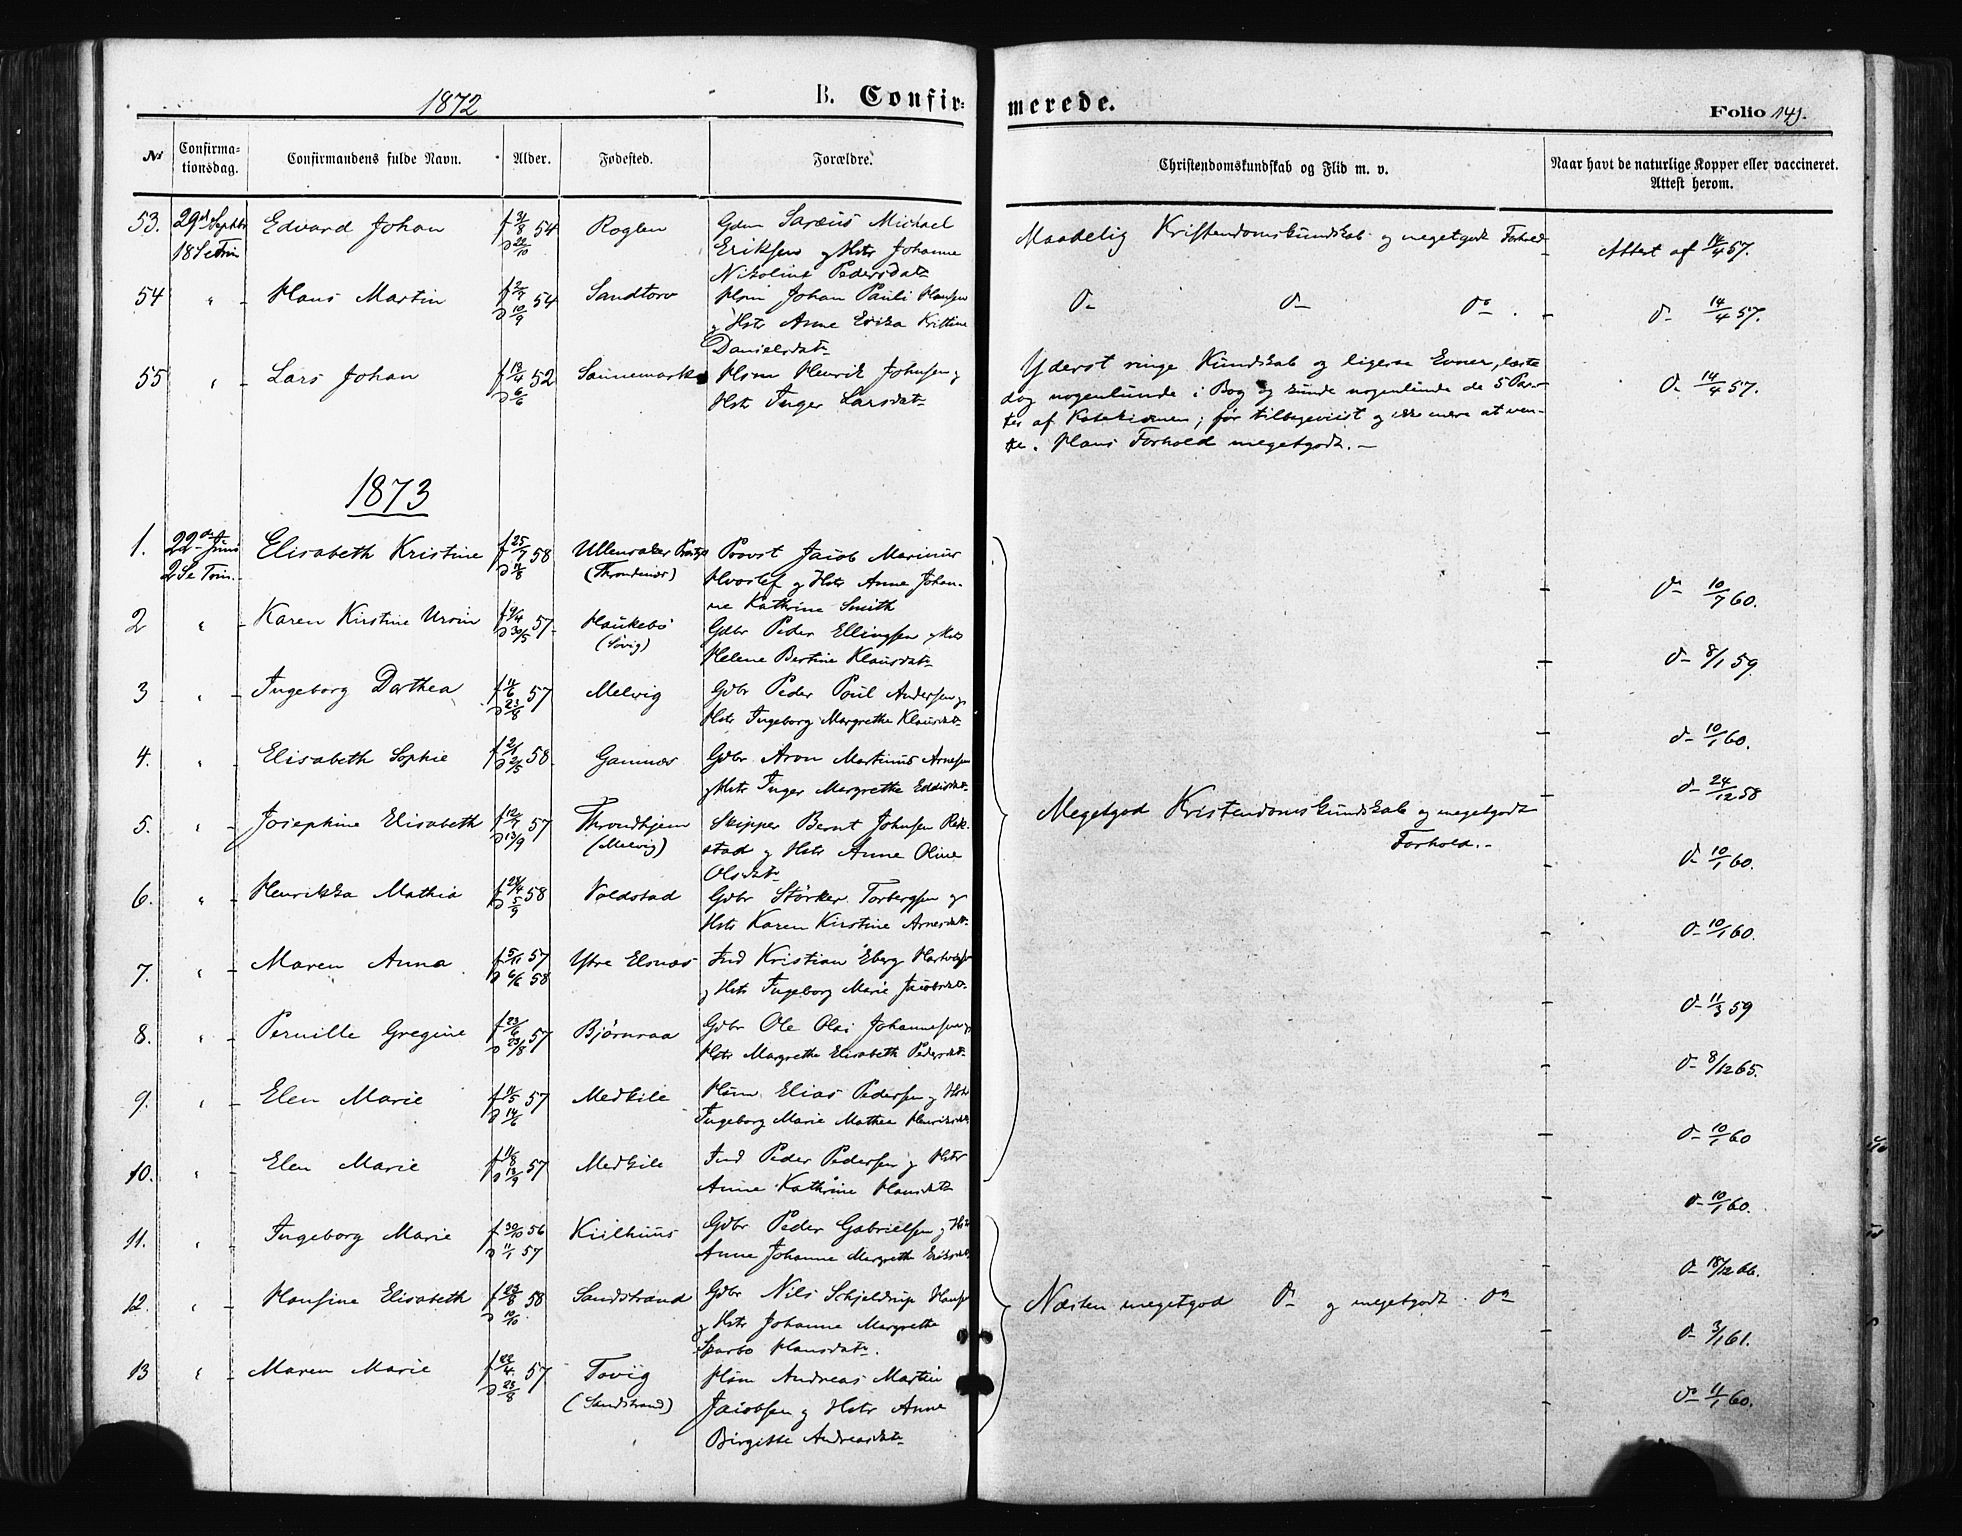 1872 B. Confirmerede. Folio 149.
No Confirmationsdag. Confirmandens fulde Navn. Alder. Fødested. Forældre. Christendomskundskab og Flid m. v. Naar havt de naturlige Kopper eller vaccineret. Attest herom.
53. 29d Septbr Edvard Johan f 3/8 54 Roglen Gdm Saræus Michael Maadelig Kristendomskundskab og megetgodt Forhold Attest af 14/4 57.
18 S e Trin d 22/10 Eriksen og Hstr Johanne
Nikoline Pedersdat
54 " Hans Martin f 2/7 54 Sandtorv Hsm Johan Pauli Hansen D- D- Do D- 14/4 57.
d 10/9 og Hstr Anne Erika Kristine
Danielsdat
55 " Lars Johan f 13/4 52 Saunemark Hsm Henrik Johnsen og Yderst ringe Kundskab og ligesaa Evner, læste D- 14/4 57.
d 6/6 Hstr Inger Larsdat dog nogenlunde i Bog og kunde nogenlunde de 5 Par-
ter af Katekismen; før tilbageviist og ikke mere at ven-
te. Hans Forhold megetgodt.-
1873
1. 22de Juni Elisabeth Kristine f 25/7 58 Ullensaker Provst Jacob Marinus D- 10/7 60.
2 S e Trin. d 11/8 (Throndenæs) Hvoslef og Hstr Anne Johan-
ne Kathrine Smith
2 " Karen Kirstine Ursin f 9/4 57. Haukebø Gdbr Peder Ellingsen og Hstr D- 8/1 59.
d 30/5 (Søvig) Helene Bertine Klausdat
3 " Ingeborg Dorthea f 11/6 57 Melvig Gdbr Peder Poul Andersen og D- 10/1 60.
d 23/8 Hstr Ingeborg Margrethe Klausdat
4. " Elisabeth Sophie f 2/1 58. Gamnes Gdbr Aron Martinus Arnesen D- 24/12 58
d 2/5 og Hstr Inger Margrethe
5. " Josephine Elisabeth f 12/7 57 Throndhjem Skipper Bernt Johnsen Rek- Megetgod Kristendomskundskab og megetgodt D- 10/1 60.
d 13/9 (Melvig) stad og Hstr Anne Oline Forhold.-
Olsdat
6. " Henrikka Mathia f 28/4 58 Voldstad Gdbr Størker Torbergsen og D- 10/1 60.
d 5/9 Hstr Karen Kirstine Arnesdat
7. " Maren Anna f 5/11 57 Ytre Elsnæs Ind Kristian Eberg D- 11/3 59
d 6/6 58 og Hstr Ingeborg Marie Jacobsdat
8. " Pernille Gregine f 23/6 57 Bjørnraa Gdbr Ole Olai Johannesen og D- 8/12 65.
d 23/8 Hstr Margrethe Elisabeth Pedersdat
9. " Elen Marie f 11/5 57 Medkile Hsm Elias Pedersen og Hstr D- 10/1 60
d 14/6 Ingeborg Marie Mathea Henriksdat
10. " Elen Marie f 11/8 57 Medkile Ind Peder Pedersen og Hstr D- 10/1 60.
d 13/9 Anne Kathrine Hansdat
11. " Ingeborg Marie f 30/10 56 Kiilhuus Gdbr Peder Gabrielsen og Hstr D- 18/12 66.
d 11/1 57 Anne Johanne Margrethe Eriksdat
12. " Hansine Elisabeth f 23/8 58 Sandstrand Gdbr Nils Schjeldrup Hansen Næsten megetgod D- og megetgodt Do D- 3/1 61.
d 10/10 og Hstr Johanne Margrethe
Sparbo Hansdat.
13 " Maren Marie f 22/4 57 Tovig Hsm Andreas Martin Do 11/1 60.
d 23/8 (Sandstrand) Jacobsen og Hstr Anne
Birgitte Andreasdat